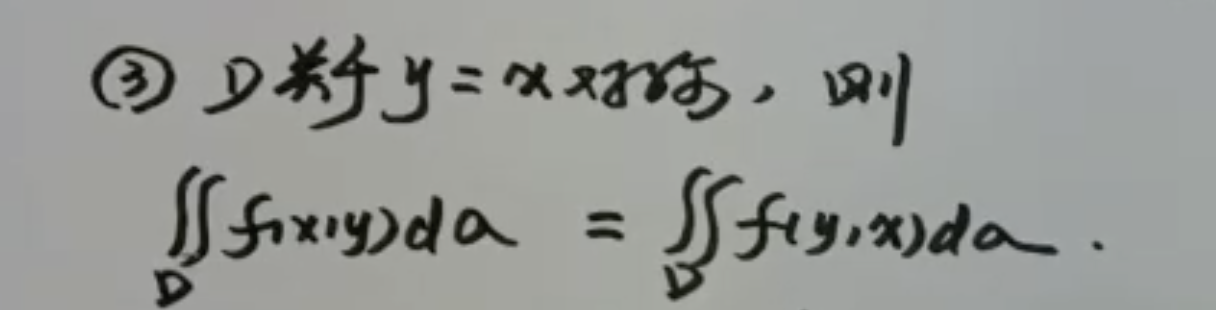 ③ D关于y=x对称,则
∬_D f(x,y)dσ = ∬_D f(y,x)dσ.